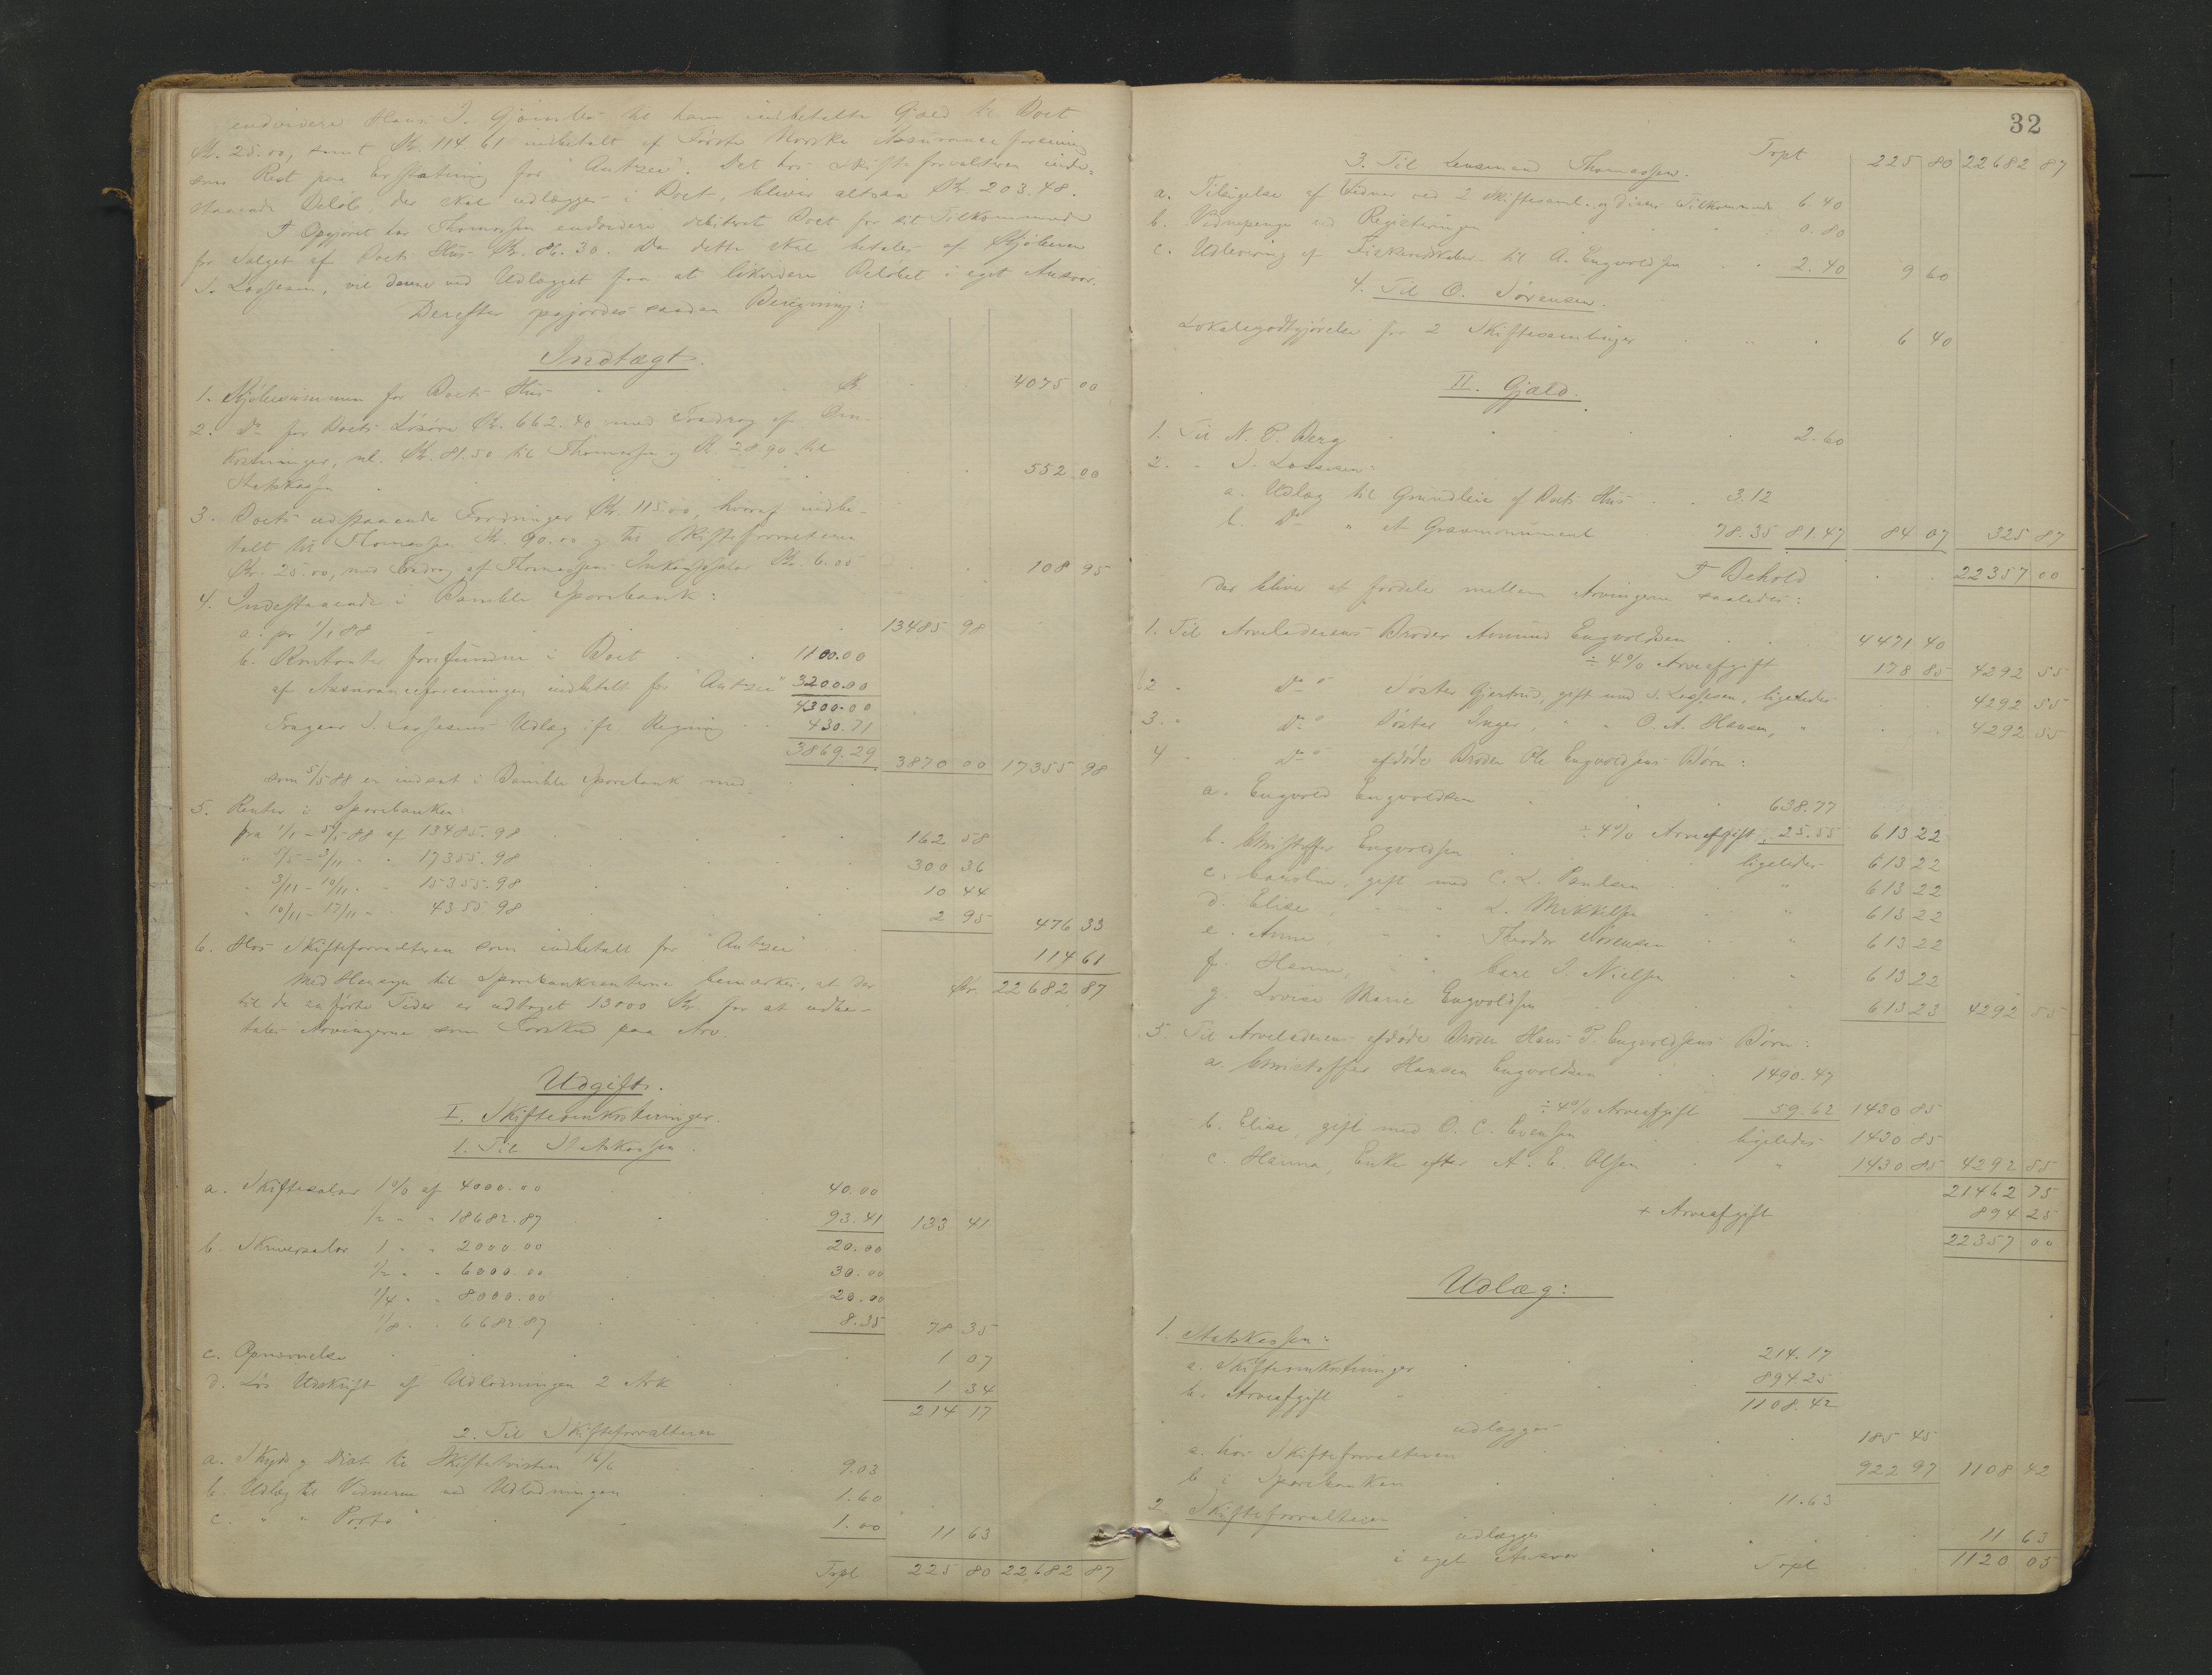 endvidere Hans J. Gjømles til ham indbetalte Gjæld til Boet
Kr. 25.00, samt Kr. 114.61 indbetalt af Første Norske Assuranceforening
som Rest paa Erstatning for "Antzee". Det hos Skifteforvalteren inde-
staaende Beløb, der skal udlægges i Boet, bliver altsaa Kr. 203.48.
I Opgjøret har Thomassen endvidere debiteret Boet for sit Tilkommende
for Salget af Boets Hus Kr. 86.30. Da dette skal betales af Kjøberen
S. Lassesen, vil denne ved Udlægget faa at likvidere Beløbet i eget Ansvar.
Derefter opgjordes saadan Beregning:
Indtægt.
1. Kjøbesummen for Boets Hus Kr. 4075 00
2. Do for Boets Løsøre Kr. 662.40 med Fradrag af Om-
kostninger, nl. Kr. 81.50 til Thomassen og Kr. 28.90 til
Statskassen 552.00
3. Boets udstaaende Fordringer Kr. 115.00, hvoraf indbe-
talt til Thomassen Kr. 90.00 og til Skifteforvalteren
Kr. 25.00, med Fradrag af Thomassens Inkassosalær Kr. 6.05 108 95
4. Indestaaende i Bamble Sparebank:
a. pr 1/1 88 13485 98
b. Kontanter forefundne i Boet 1100.00
af Assuranceforeningen indbetalt for "Antzee" 3200.00
4300.00
Fragaar S. Lassesens Udlæg ifl. Regning 430.71
3869.29
som 5/5 88 er indsat i Bamble Sparebank med 3870 00 17355 98
5. Renter i Sparebanken
fra 1/1 - 5/5 88 af 13485.98 162 58
" 5/5 - 3/11 " " 17355.98 300 36
" 3/11 - 10/11 " " 15355.98 10 44
" 10/11 - 17/11 " " 4355.98 2 95 476 33
6. Hos Skifteforvalteren som indbetalt for "Antzee" 114 61
Med Hensyn til Sparebankrenterne bemærkes, at der Kr. 22682 87
til de anførte Tider er udtaget 13000 Kr. for at udbe-
tales Arvingerne som Forskud paa Arv.
Udgift.
I. Skifteomkostninger.
1. Til Statskassen.
a. Skiftesalær 1% af 4000.00 40.00
1/2 " " 18682.87 93.41 133 41
b. Skriversalær 1 " " 2000.00 20.00
1/2 " " 6000.00 30.00
1/4 " " 8000.00 20.00
1/8 " " 6682.87 8.35 78 35
c. Opnævnelse 1 07
d. Løs Udskrift af Udlodningen 2 Ark 1 34
214 17
2. Til Skifteforvalteren
a. Skyds og Diæt til Skifteboet 16/6 9.03
b. Udlæg til Vidnerne ved Udlodningen 1.60
c. " " Porto 1.00 11 63
Trpt 225 80 22682 87
32
Trpt 225 80 22682 87
3. Til Lensmand Thomassen.
a. Tilsigelse af Vidner ved 2 Skiftesaml. og disses Tilkommende 6.40
b. Vidnepenge ved Registeringen 0.80
c. Udlevering af Fiskeredskaber til A. Engvoldsen 2.40 9 60
4. Til O. Sørensen.
Lokalegodtgjørelse for 2 Skiftesamlinger 6 40
II. Gjæld.
1. Til N. P. Berg 2.60
2. " S. Lassesen:
a. Udlæg til Grundleie af Boets Hus 3.12
b. Do " et Gravmonument 78.35 81.47 84 07 325 87
I Behold 22357 00
der bliver at fordele mellem Arvingerne saaledes:
1. Til Arveladerens Broder Amund Engvoldsen 4471 40
÷ 4% Arveafgift 178 85 4292 55
2 " Do Søster Gjertrud, gift med S. Lassesen, ligeledes 4292 55
3. " Do Søster Inger, " " O. A. Hansen, " 4292 55
4 " Do afdøde Broder Ole Engvoldsens Børn:
a. Engvold Engvoldsen 638.77
÷ 4% Arveafgift 25.55 613 22
b. Christoffer Engvoldsen ligeledes 613 22
c. Caroline, gift med C. L. Paulsen " 613 22
d. Elise, " " L. Mikkelsen " 613 22
e. Anne, " " Theodor Sørensen " 613 22
f. Hanne, " " Carl J. Nielsen " 613 22
g. Lovise Marie Engvoldsen " 613 23 4292 55
5. Til Arveladerens afdøde Broder Hans P. Engvoldsens Børn:
a. Christoffer Hansen Engvoldsen 1490.47
÷ 4% Arveafgift 59.62 1430 85
b. Elise, gift med O. C. Evensen ligeledes 1430 85
c. Hanna, Enke efter A. E. Olsen " 1430 85 4292 55
21462 75
+ Arveafgift 894 25
22357 00
Udlæg:
1. Statskassen:
a. Skifteomkostninger 214.17
b. Arveafgift 894.25
1108.42
udlægges
a. hos Skifteforvalteren 185 45
b. i Sparebanken 922 97 1108 42
2. Skifteforvalteren 11.63
udlægges
i eget Ansvar 11 63
Trpt 1120 05